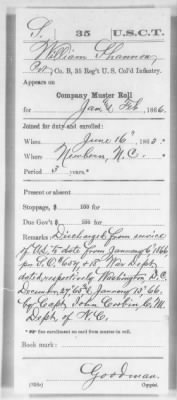 S. 35 U.S.C.T.
William Shannon
Pvt, Co. B, 35 Reg't U. S. Col'd Infantry.
Appears on
Company Muster Roll
for Jan & Feb, 1866.
Joined for duty and enrolled:
When June 16, 1863.
Where Newbern, N.C.
Period 3 years.*
Present or absent
Stoppage, $ 100 for
Due Gov't $ 100 for
Remarks: Discharged from service
of U.S. to date from January 6, 1866
per S.O. # 654 & 15 War Dept
dated respectively Washington, D.C.
December 27, 65 & January 12, 66.
by Capt John Corbin C.M.
Dept of N.C.
Book mark:
Goodman.
(358c) Copyist.